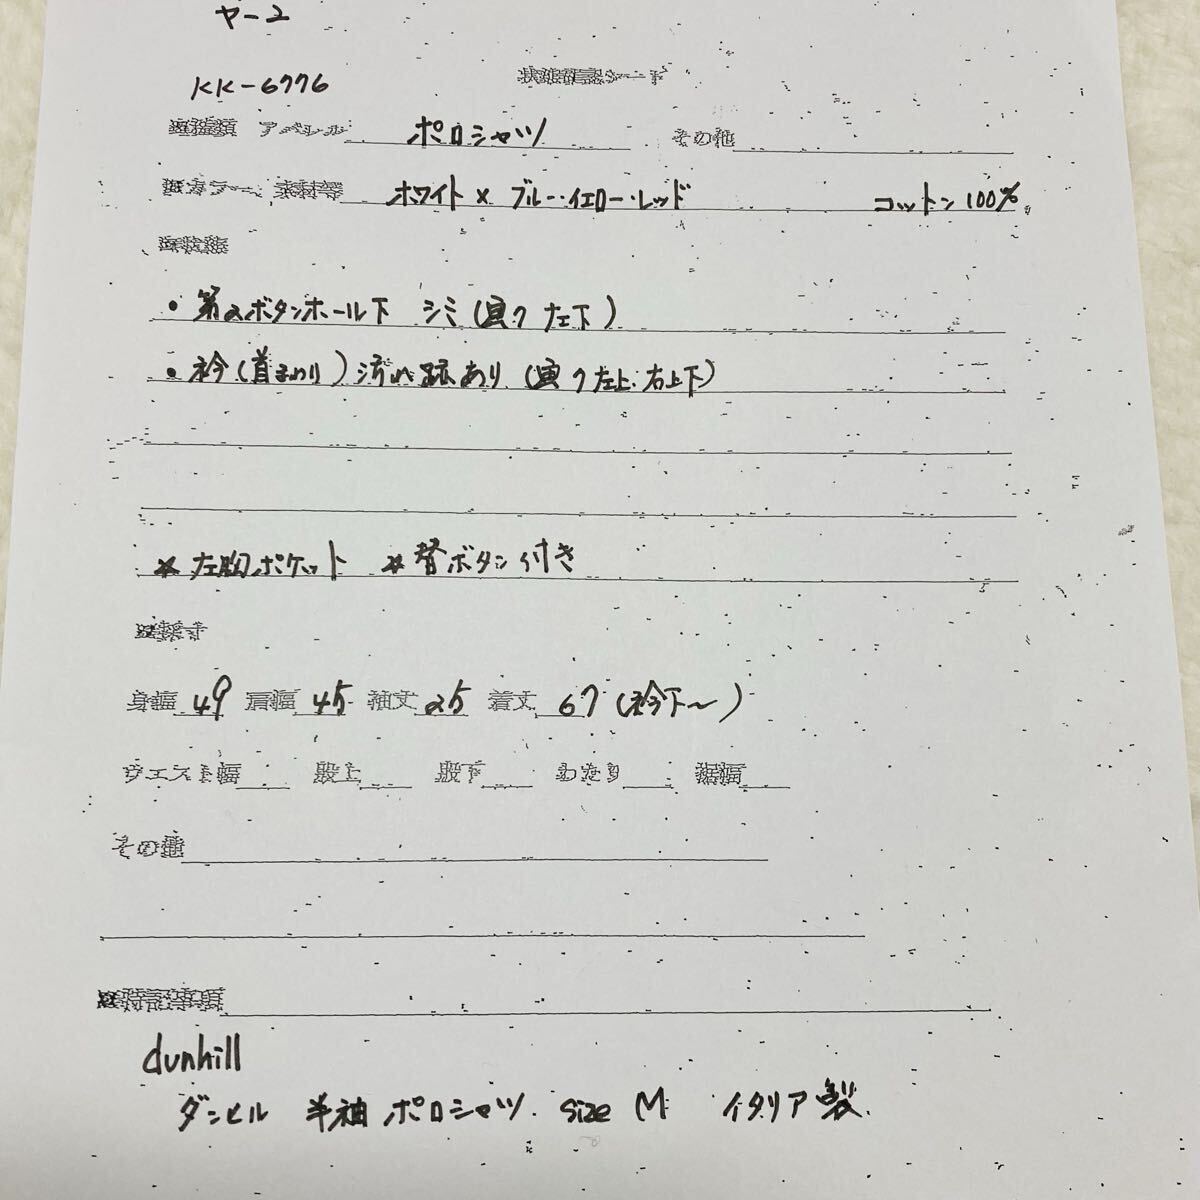 ヤ-2
状態確認シート
KK-6776
■種類 アパレル ポロシャツ その他
■カラー、素材等 ホワイト×ブルー・イエロー・レッド コットン100%
■状態
・第2ボタンホール下 シミ(画7 左下)
・衿(首まわり)汚れ跡あり(画7 左上・右上下)
*左胸ポケット *替ボタン付き
■採寸
身幅 49 肩幅 45 袖丈 25 着丈 67(衿下〜)
ウエスト幅 股上 股下 わたり 裾幅
その他
■特記事項
dunhill
ダンヒル 半袖 ポロシャツ. size M イタリア製